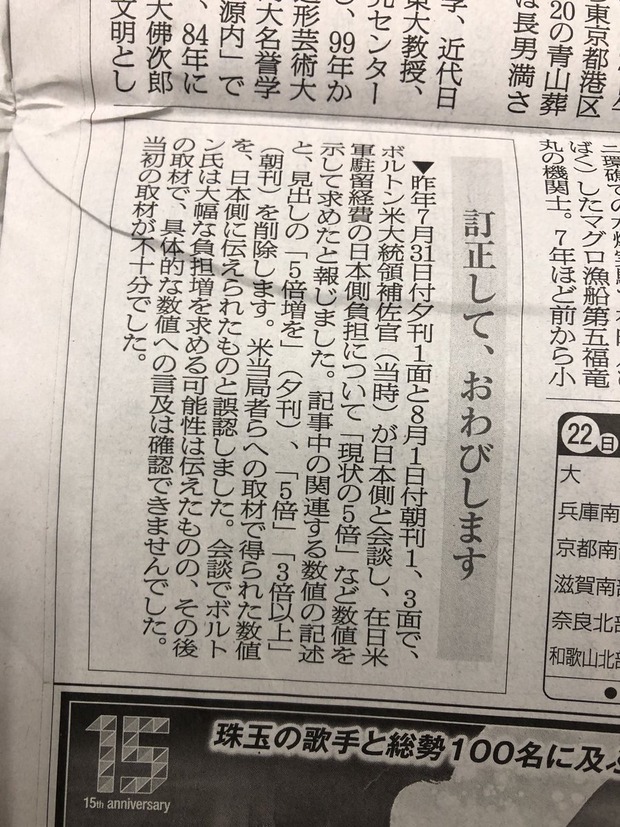 東京都港区
20の青山葬
は長男満さ
学、近代日
東大教授、
センター
、99年か
形芸術大
大名誉学
源内」で
、84年に
大佛次郎
文明とし
ばく）したマグロ漁船第五福竜
丸の機関士。7年ほど前から小
訂正して、おわびします
▼昨年7月31日付夕刊1面と8月1日付朝刊1、3面で、
ボルトン米大統領補佐官（当時）が日本側と会談し、在日米
軍駐留経費の日本側負担について「現状の5倍」など数値を
示して求めたと報じました。記事中の関連する数値の記述
と、見出しの「5倍増を」（夕刊）、「5倍」「3倍以上」
（朝刊）を削除します。米当局者らへの取材で得られた数値
を、日本側に伝えられたものと誤認しました。会談でボルト
ン氏は大幅な負担増を求める可能性は伝えたものの、その後
の取材で、具体的な数値への言及は確認できませんでした。
当初の取材が不十分でした。
22日
大
兵庫南
京都南
滋賀南部
奈良北部
和歌山北部
15
15th anniversary
珠玉の歌手と総勢100名に及